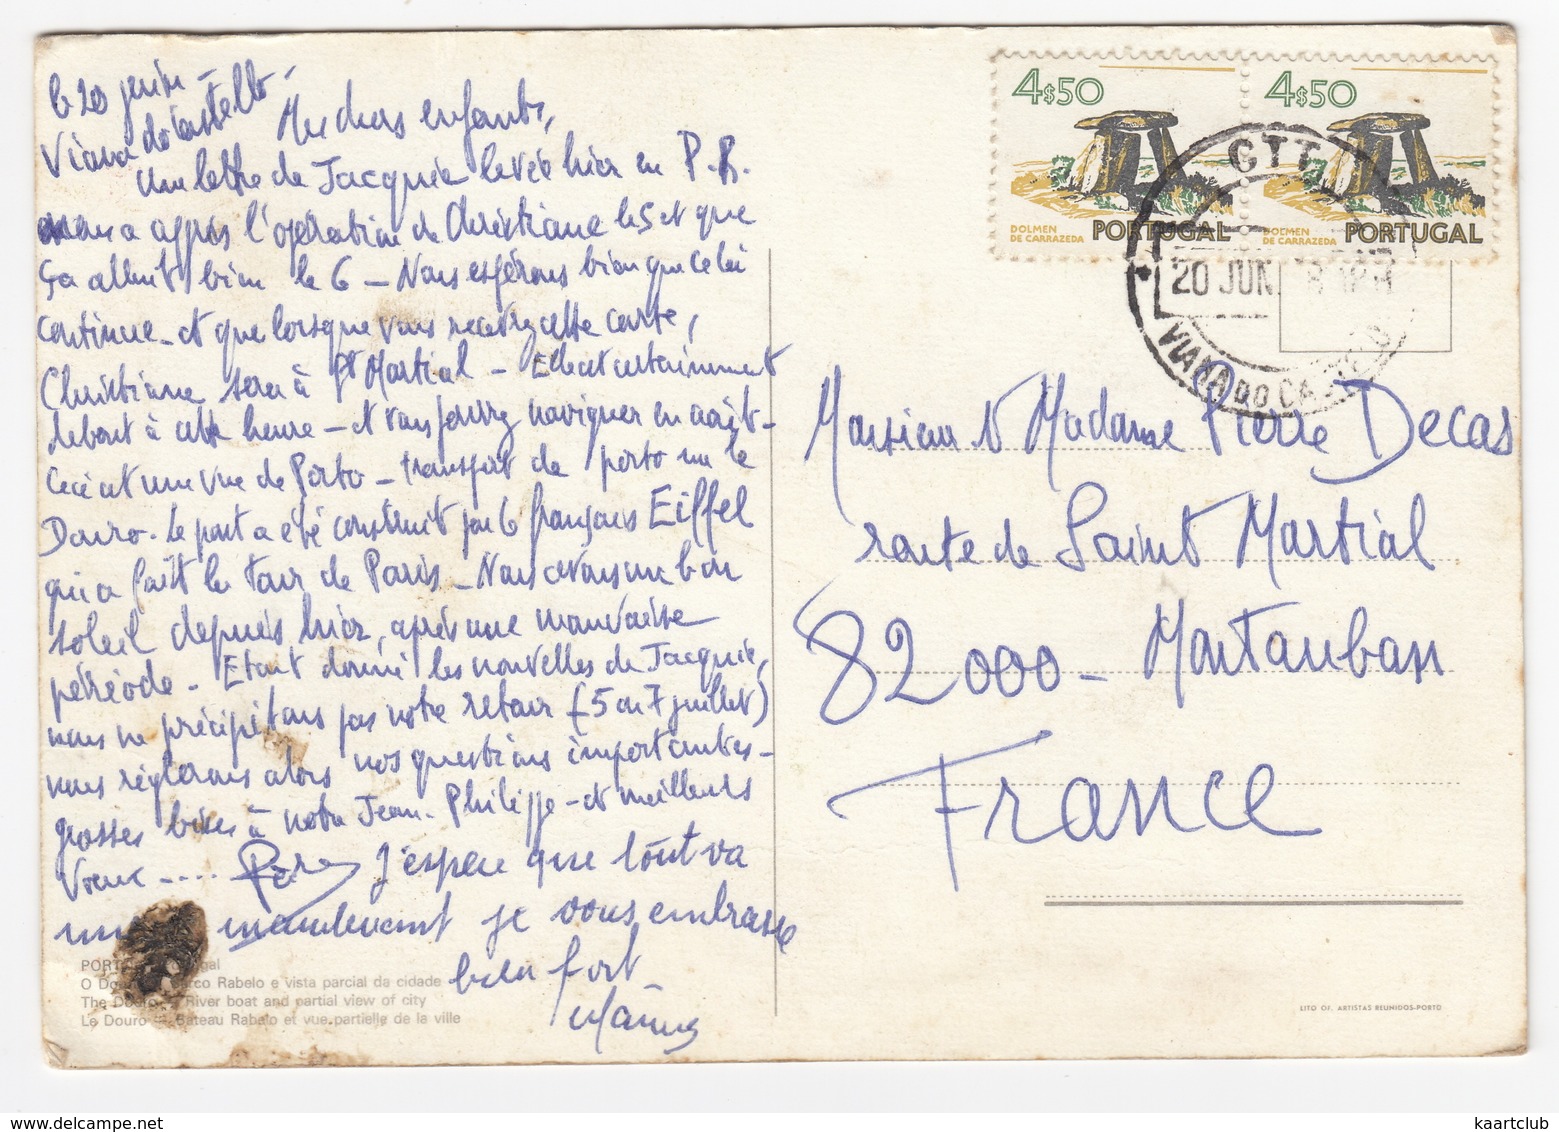 le 20 juin -
Viana do Castello -
Mes chers enfants,
Une lettre de Jacquie levée hier en P.R.
nous a appris l'opération de Christiane le 5 et que
ça allait bien le 6 - Nous espérons bien que cela
continue - et que lorsque vous recevrez cette carte,
Christiane sera à St Martial - Elle est certainement
debout à cette heure - et vous pourrez naviguer en août -
Ceci est une vue de Porto - transport de porto sur le
Douro - Le pont a été construit par le français Eiffel
qui a fait la tour de Paris - Nous avons un bon
soleil depuis hier, après une mauvaise
période - Etant donné les nouvelles de Jacquie,
nous ne précipitons pas notre retour (5 ou 7 juillet)
nous réglerons alors nos questions importantes -
grosses bises à notre Jean-Philippe - et meilleurs
Vœux .... J'espère que tout va
maintenant je vous embrasse
bien fort
4$50
DOLMEN
DE CARRAZEDA
PORTUGAL
4$50
DOLMEN
DE CARRAZEDA
PORTUGAL
CTT
20 JUN.
VIANA DO CASTELO
Monsieur et Madame Pierre Decas
route de Saint Martial
82000 - Montauban
France
O Barco Rabelo e vista parcial da cidade
The Douro River boat and partial view of city
Le Douro - Bateau Rabelo et vue partielle de la ville
LITO OF. ARTISTAS REUNIDOS-PORTO
kaartclub